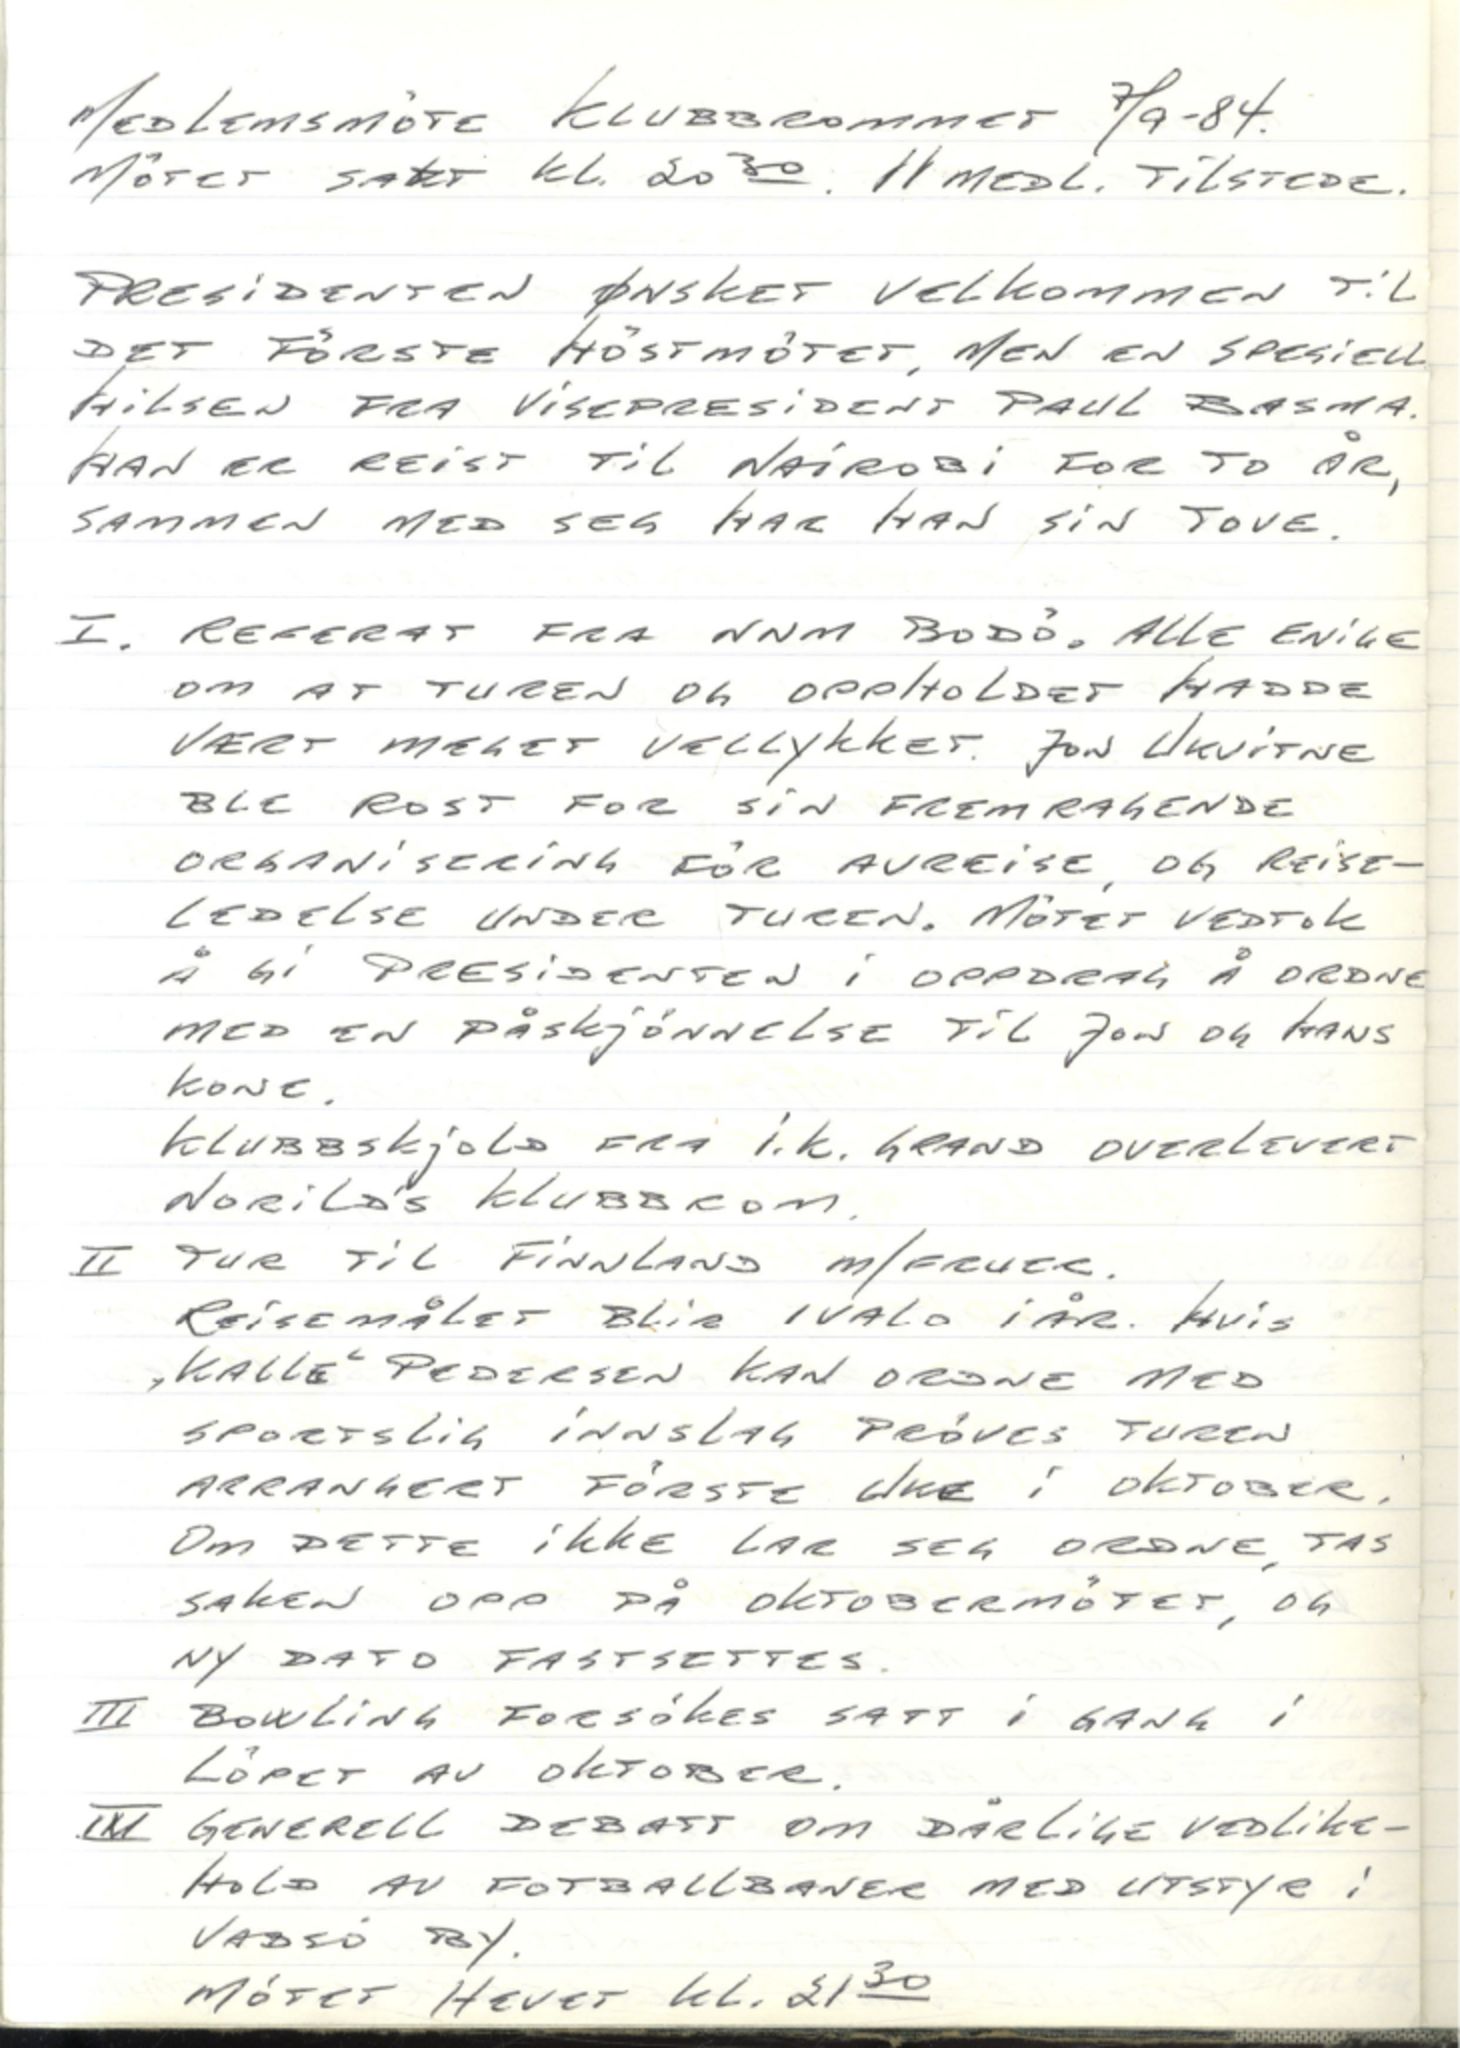 MEDLEMSMÖTE KLUBBROMMET 7/9-84.
MÖTET SATT KL. 20 30. 11 MEDL. TILSTEDE.
PRESIDENTEN ØNSKET VELKOMMEN TIL
DET FÖRSTE HÖSTMÖTET, MEN EN SPESIELL
HILSEN FRA VISEPRESIDENT PAUL BASMA.
HAN ER REIST TIL NAIROBI FOR TO ÅR,
SAMMEN MED SEG HAR HAN SIN TOVE.
I. REFERAT FRA NNM BODÖ. ALLE ENIGE
OM AT TUREN OG OPPHOLDET HADDE
VÆRT MEGET VELLYKKET. JON UKVITNE
BLE ROST FOR SIN FREMRAGENDE
ORGANISERING FÖR AVREISE, OG REISE-
LEDELSE UNDER TUREN. MÖTET VEDTOK
Å GI PRESIDENTEN I OPPDRAG Å ORDNE
MED EN PÅSKJÖNNELSE TIL JON OG HANS
KONE.
KLUBBSKJOLD FRA I.K. GRAND OVERLEVERT
NORILD'S KLUBBROM.
II TUR TIL FINNLAND M/FRUER.
REISEMÅLET BLIR IVALO IÅR. HVIS
„KALLE" PEDERSEN KAN ORDNE MED
SPORTSLIG INNSLAG PRÖVES TUREN
ARRANGERT FÖRSTE UKE I OKTOBER.
OM DETTE IKKE LAR SEG ORDNE, TAS
SAKEN OPP PÅ OKTOBERMÖTET, OG
NY DATO FASTSETTES.
III BOWLING FORSÖKES SATT I GANG I
LÖPET AV OKTOBER.
GENERELL DEBATT OM DÅRLIGE VEDLIKE-
HOLD AV FOTBALLBANER MED UTSTYR I
VADSÖ BY.
MÖTET HEVET KL. 21 30